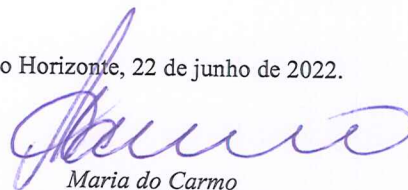 o Horizonte, 22 de junho de 2022.
Maria do Carmo